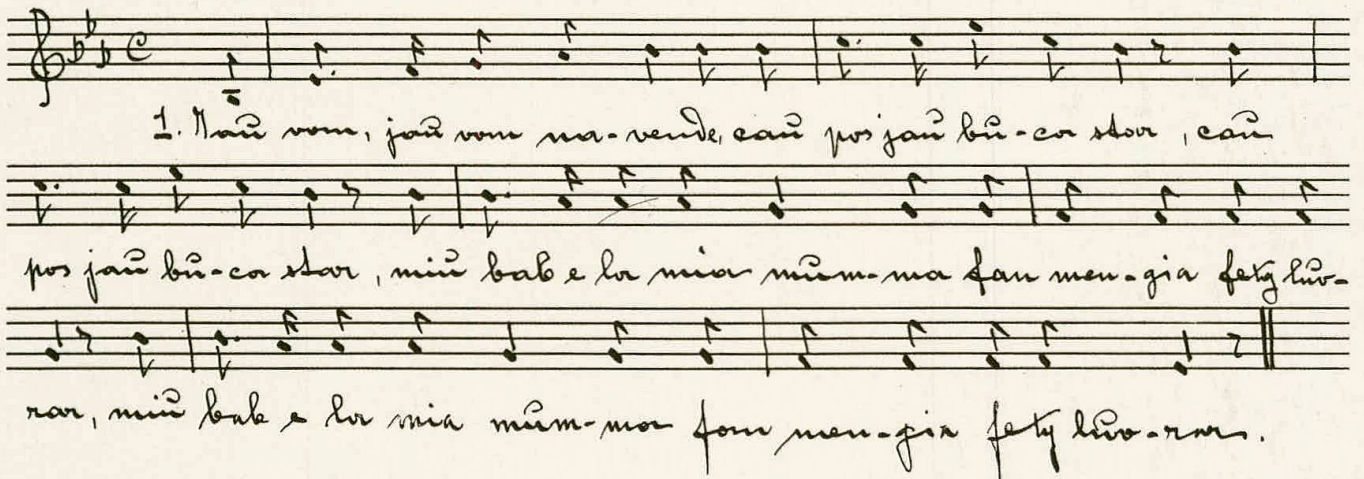 1. Jau vom, jau vom na-vende, cau pos jau bu-ca star, cau
pos jau bu-ca star, miu bab e la mia mum-ma fan men-gia fetg luv-
rar, miu bab e la mia mum-ma fan men-gia fetg luv-rar.